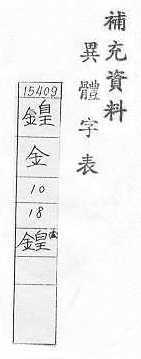 補充資料
異體字表
15409
鍠
金
10
18
鍠